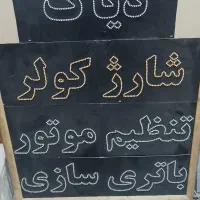 دیاگ
شارژ کولر
تنظیم موتور
باتری سازی